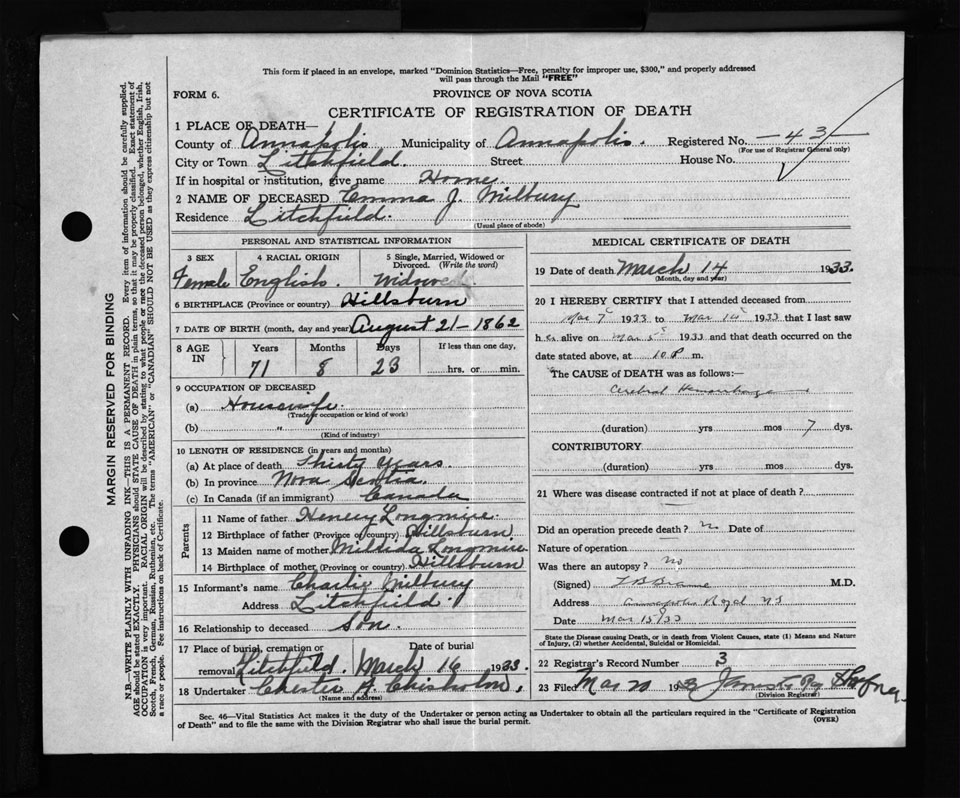 This form if placed in an envelope, marked "Dominion Statistics—Free, penalty for improper use, $300," and properly addressed
will pass through the Mail "FREE"
FORM 6.
PROVINCE OF NOVA SCOTIA
CERTIFICATE OF REGISTRATION OF DEATH
1 PLACE OF DEATH—
County of Annapolis Municipality of Annapolis. Registered No. —43—
(For use of Registrar General only)
City or Town Litchfield. Street House No.
If in hospital or institution, give name Home.
2 NAME OF DECEASED Emma J. Milbury
Residence Litchfield.
(Usual place of abode)
PERSONAL AND STATISTICAL INFORMATION
3 SEX 4 RACIAL ORIGIN 5 Single, Married, Widowed or
Divorced. (Write the word)
Female English. Widowed
6 BIRTHPLACE (Province or country) Hillsburn
7 DATE OF BIRTH (month, day and year) August 21–1862
8 AGE IN Years Months Days If less than one day,
71 8 23 hrs. or min.
9 OCCUPATION OF DECEASED
(a) Housewife.
(Trade or occupation or kind of work)
(b) "
(Kind of industry)
10 LENGTH OF RESIDENCE (in years and months)
(a) At place of death Thirty Years.
(b) In province Nova Scotia.
(c) In Canada (if an immigrant) Canada
Parents
11 Name of father Henery Longmire.
12 Birthplace of father (Province or country) Hillsburn
13 Maiden name of mother Millida Longmire
14 Birthplace of mother (Province or country) Hillsburn
15 Informant's name Charlie Milbury
Address Litchfield.
16 Relationship to deceased Son.
17 Place of burial, cremation or Date of burial
removal Litchfield. March 16 1933.
18 Undertaker Chester A. Chisholm,
(Name and address)
MEDICAL CERTIFICATE OF DEATH
19 Date of death March 14 1933.
(Month, day and year)
20 I HEREBY CERTIFY that I attended deceased from
Mar 7 1933 to Mar 14 1933 that I last saw
her alive on Mar 1933 and that death occurred on the
date stated above, at 10 P m.
The CAUSE of DEATH was as follows:—
Cerebral Hemorrhage
(duration) yrs mos 7 dys.
CONTRIBUTORY
(duration) yrs. mos. dys.
21 Where was disease contracted if not at place of death?
Did an operation precede death? no Date of
Nature of operation
Was there an autopsy? no
(Signed) M.D.
Address Annapolis Royal NS
Date Mar 15/33
State the Disease causing Death, or in death from Violent Causes, state (1) Means and Nature
of Injury, (2) whether Accidental, Suicidal or Homicidal.
22 Registrar's Record Number 3
23 Filed Mar 20 1933
(Division Registrar)
Sec. 46—Vital Statistics Act makes it the duty of the Undertaker or person acting as Undertaker to obtain all the particulars required in the "Certificate of Registration
of Death" and to file the same with the Division Registrar who shall issue the burial permit.
(OVER)
MARGIN RESERVED FOR BINDING
N.B.—WRITE PLAINLY WITH UNFADING INK—THIS IS A PERMANENT RECORD. Every item of information should be carefully supplied.
AGE should be stated EXACTLY. PHYSICIANS should STATE CAUSE OF DEATH in plain terms, so that it may be properly classified. Exact statement of
OCCUPATION is very important. RACIAL ORIGIN will be described by stating to what people or race the deceased person belonged, whether English, Irish,
Scotch, French, German, Russian, Ruthenian, etc. The terms "AMERICAN" or "CANADIAN" SHOULD NOT BE USED as they express citizenship but not
a race or people. See instructions on back of Certificate.